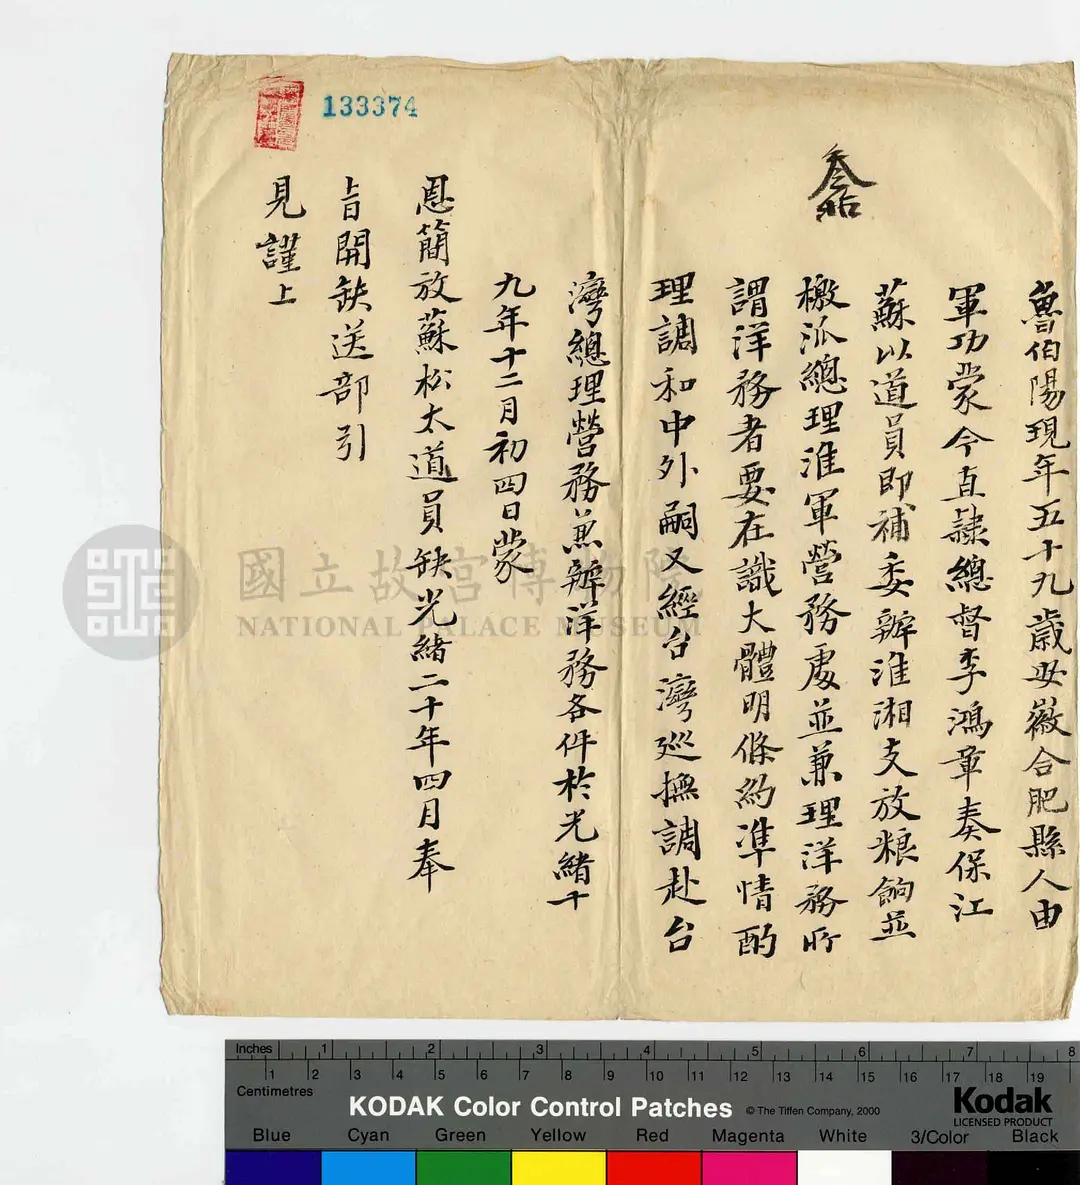 魯伯陽現年五十九歲安徽合肥縣人由
軍功蒙今直隸總督李鴻章奏保江
蘇以道員即補委辦淮湘支放粮餉並
檄派總理淮軍營務處並兼理洋務所
謂洋務者要在識大體明條約準情酌
理調和中外嗣又經台灣巡撫調赴台
灣總理營務兼辦洋務各件於光緒十
九年十二月初四日蒙
恩簡放蘇松太道員缺光緒二十年四月奉
旨開缺送部引
見謹上
133374
國立故宮博物院
NATIONAL PALACE MUSEUM
Inches 1 2 3 4 5 6 7 8
Centimetres 1 2 3 4 5 6 7 8 9 10 11 12 13 14 15 16 17 18 19
KODAK Color Control Patches © The Tiffen Company, 2000
Kodak
LICENSED PRODUCT
Blue Cyan Green Yellow Red Magenta White 3/Color Black